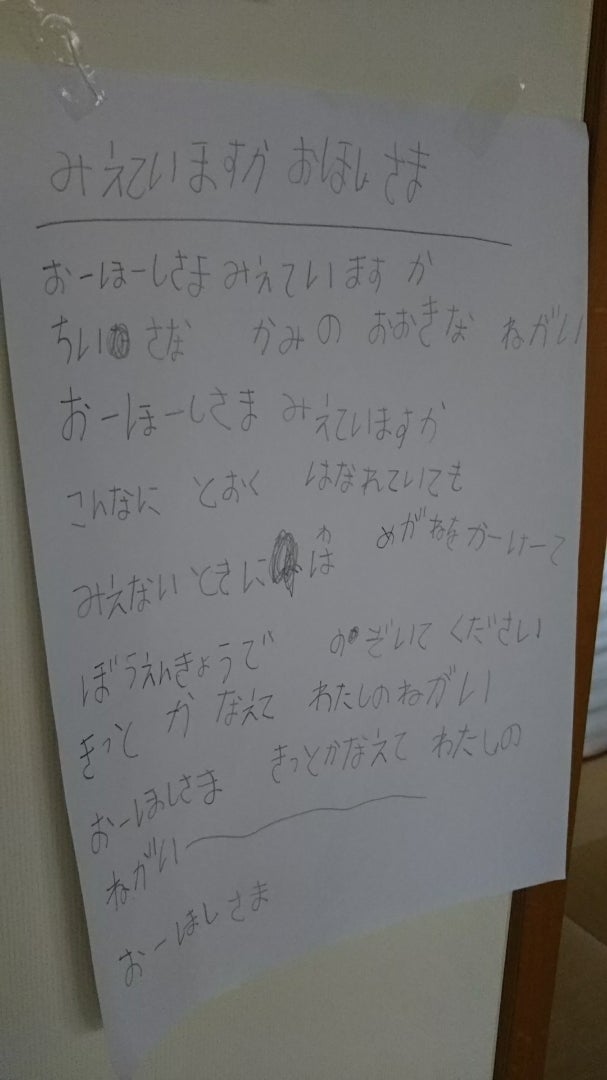 みえていますか おほしさま
おーほーしさま みえています か
ちいさな かみの おおきな ねがい
おーほーしさま みえていますか
こんなに とおく はなれていても
みえないときには めがねをかーけーて
わ
ぼうえんきょうで のぞいて ください
きっと かなえて わたしのねがい
おーほしさま きっとかなえて わたしの
ねがい〜
おーほしさま